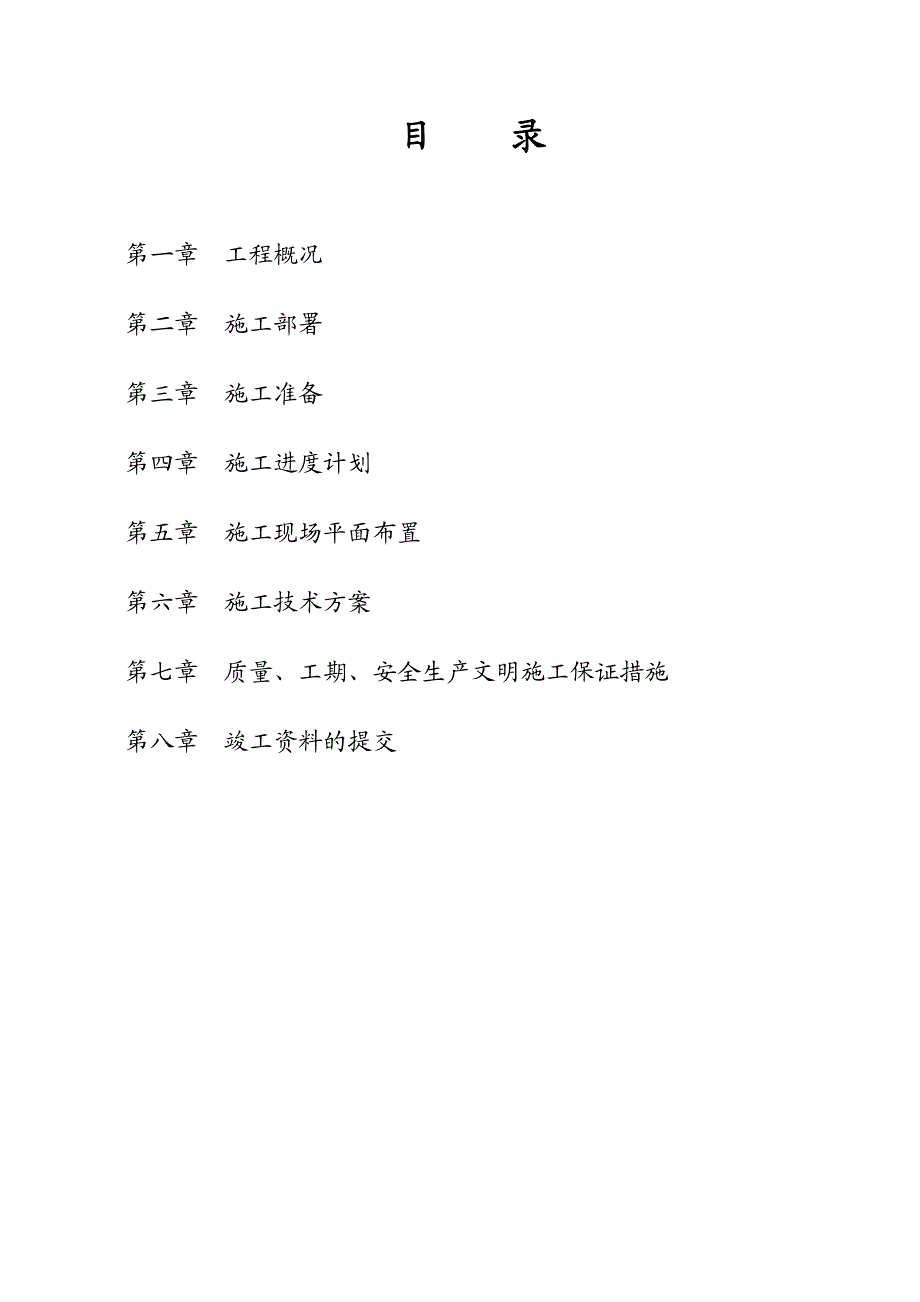 目 录
第一章 工程概况
第二章 施工部署
第三章 施工准备
第四章 施工进度计划
第五章 施工现场平面布置
第六章 施工技术方案
第七章 质量、工期、安全生产文明施工保证措施
第八章 竣工资料的提交